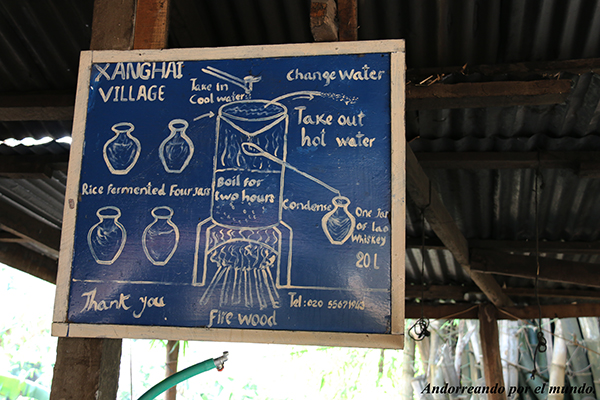 XANGHAI
VILLAGE
Take in
Cool water
Change water
Take out
hot water
Rice fermented Four Jars
Boil for
two hours
Condense
One Jar
of Lao
Whiskey
20 L
Thank you
Fire wood
Tel: 020
Andorreando por el mundo.